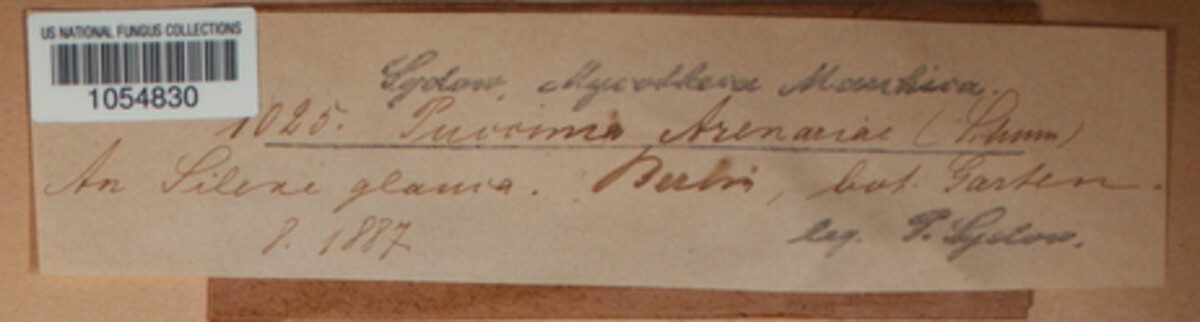 US NATIONAL FUNGUS COLLECTIONS
1054830
Sydow, Mycotheca Marchica.
1025. Puccinia Arenariae (Schum)
An Silene glauca. Berlin, bot. Garten.
8. 1887
leg. P. Sydow.